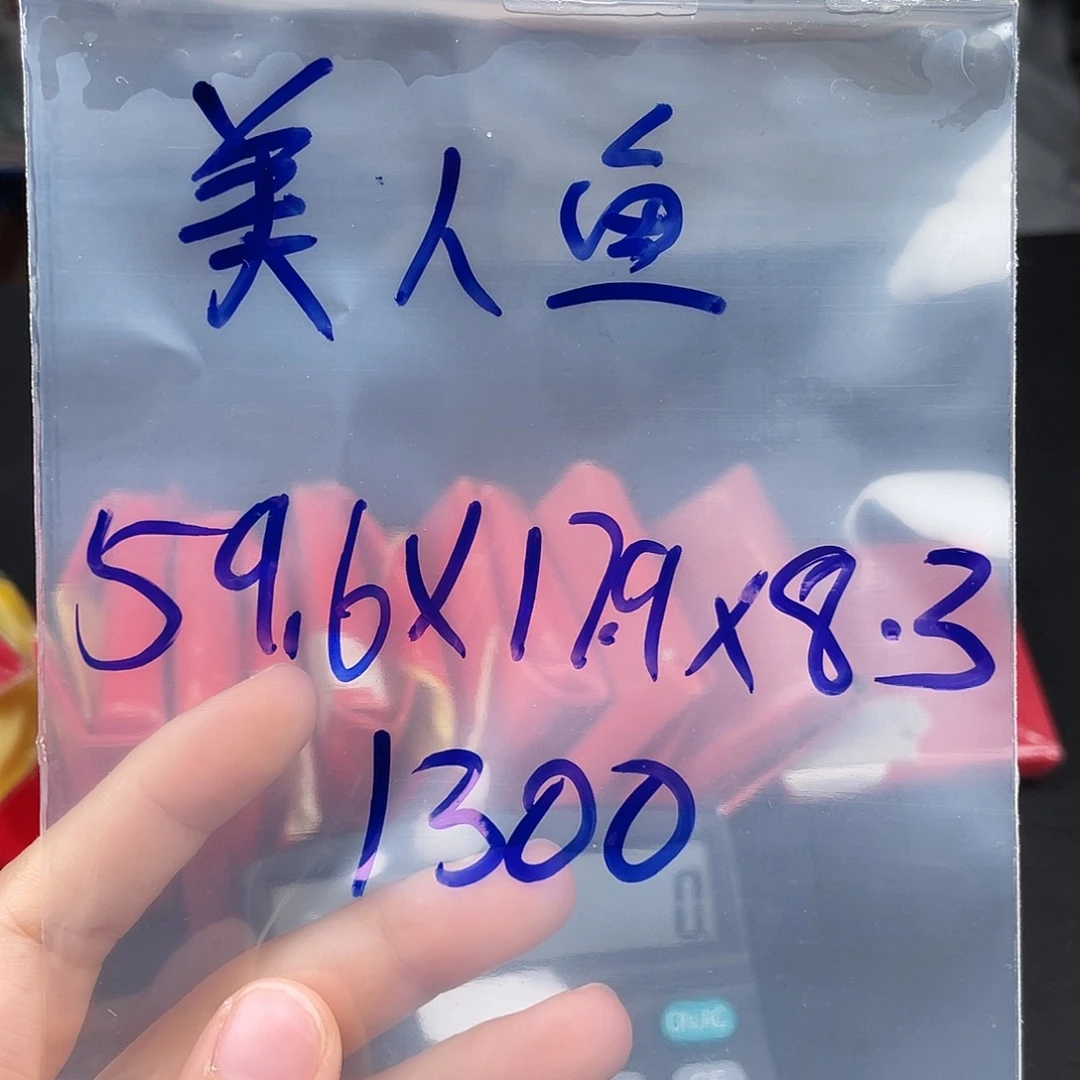 美人鱼
59.6x17.9x8.3
1300
0
ON/AC